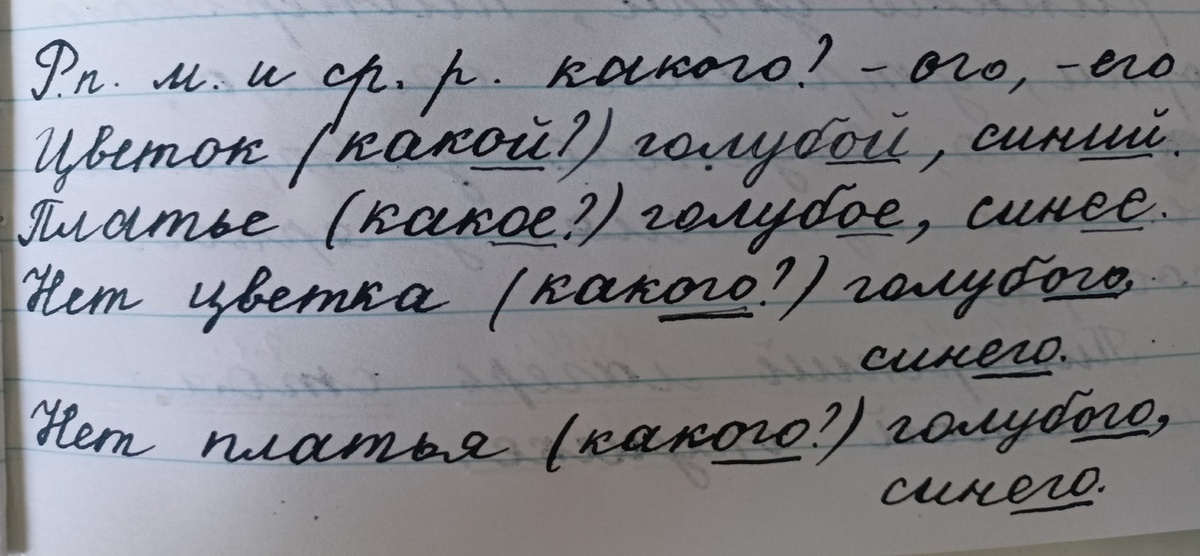 Р.п. м. и ср. р. какого? - ого, - его
Цветок (какой?) голубой, синий.
Платье (какое?) голубое, синее.
Нет цветка (какого?) голубого,
синего.
Нет платья (какого?) голубого,
синего.